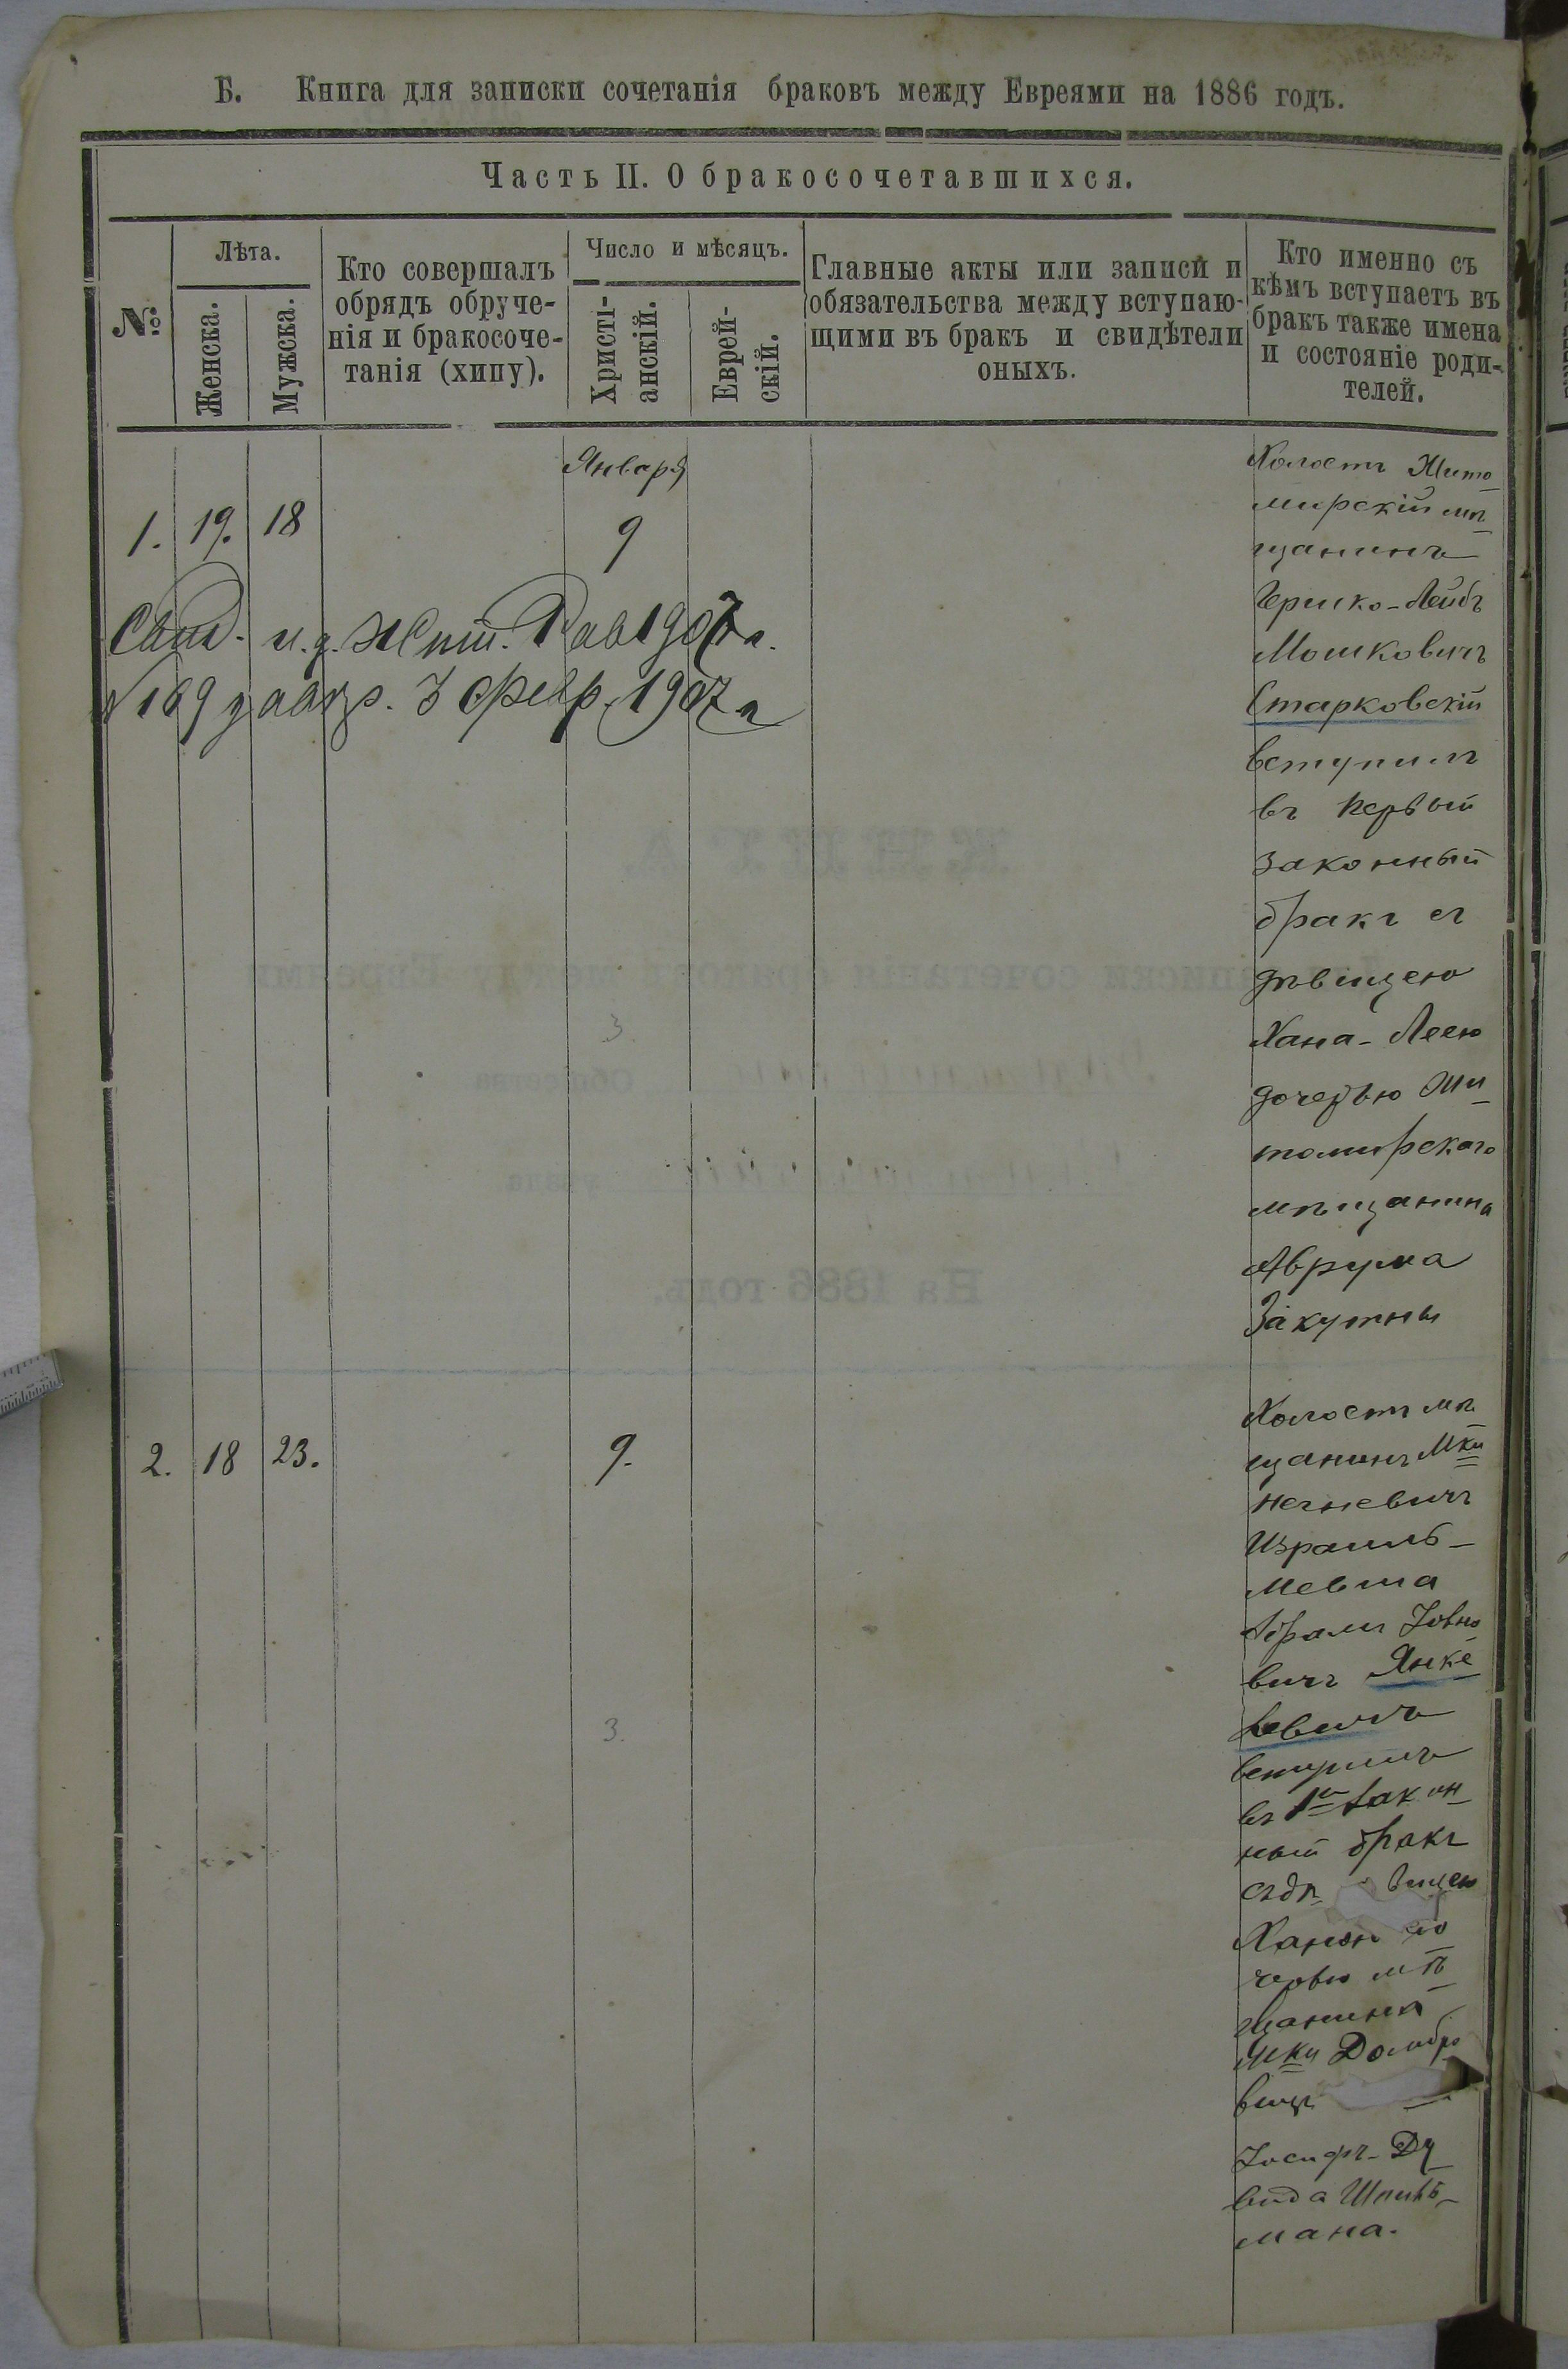 Б. Книга для записки сочетанія браковъ между Евреями на 1886 годъ.
Часть II. О бракосочетавшихся.
№
Лѣта.
Женска.
Мужска.
Кто совершалъ
обрядъ обруче-
нія и бракосоче-
танія (хипу).
Число и мѣсяцъ.
Христі-
анскій.
Еврей-
скій.
Главные акты или записи и
обязательства между вступаю-
щими въ бракъ и свидѣтели
оныхъ.
Кто именно съ
кѣмъ вступаетъ въ
бракъ также имена
и состояніе роди-
телей.
Января
1. 19. 18 9
Холостъ Жито
мирскій мѣ
щанинъ
Гершко-Лейбъ
Мошковичъ
Старковскій
вступилъ
въ первый
законный
бракъ съ
дѣвицею
Хана-Леею
дочерью Жи
томирскаго
мѣщанина
Аврума
Закутны
и.д. Жит. 1907 г.
169 3 февр. 1907 г
3
2. 18 23. 9.
Холостъ мѣ
щанинъ Мки
Израиль-
Иовно
вичъ Янке
левичъ
вступилъ
въ 1й закон
ный бракъ
съ дѣ вицею
до
черью мѣ
щанина
Мки Домбро
виц
Іосифъ-Ду
вида Шпиль
мана.
3.
КНИГА
записки сочетанія браковъ между Евреями
Общества
уѣзда
На 1886 годъ.